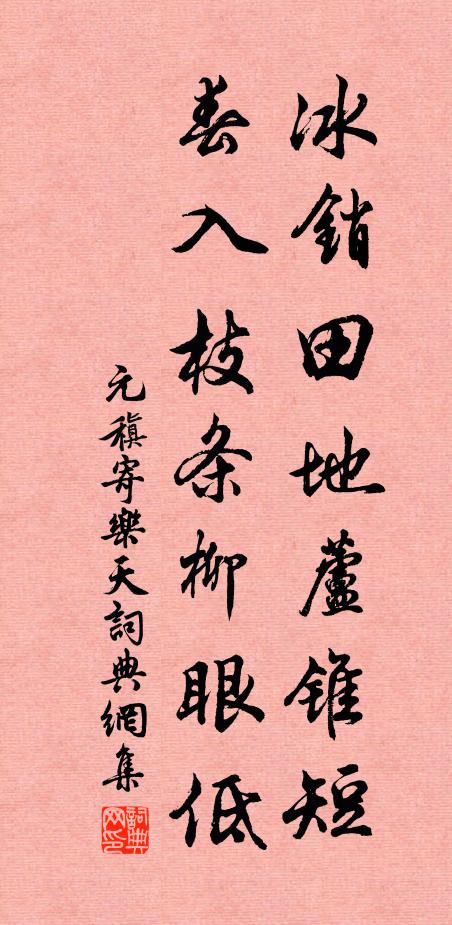 冰銷田地蘆錐短
春入枝条柳眼低
元稹寄樂天詞典網集
詞典网印